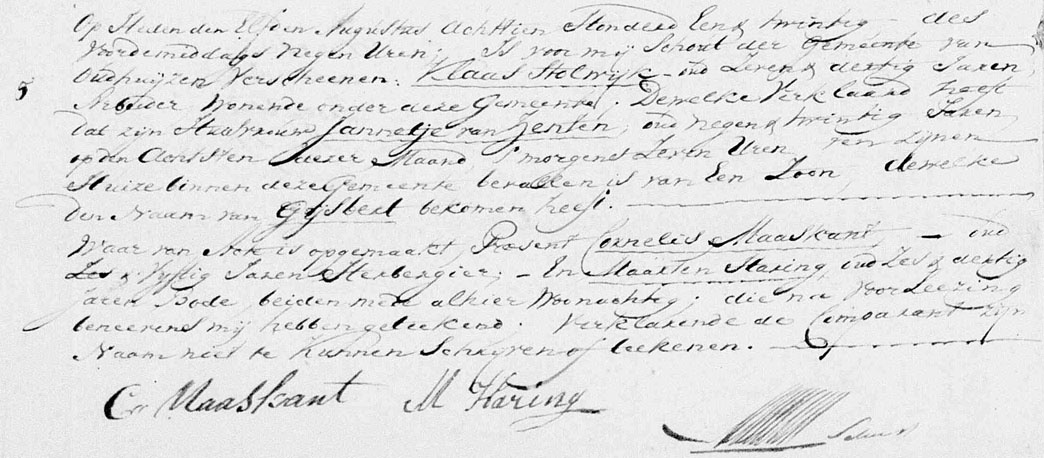 Op Heden den Elfden Augustus Achttien Honderd Een & twintig des
Voordemiddags Negen Uren; Is voor mij Schout der Gemeente van
Oudhuijzen Verscheenen. Klaas Stolwijk - oud Zeven & dertig Jaren
5 Arbeider Wonende onder deze Gemeente; Dewelke Verklaard heeft
dat zijn Huisvrouw Jannetje van Zenten, oud Negen & twintig Jaren
op den Achtsten dezer Maand, 's morgens Zeven Uren ten zijnen
Huize binnen deze Gemeente bevallen is van Een Zoon, dewelke
Den Naam van Gijsbert bekomen heeft.
Waar van Acte is opgemaakt, Present Cornelis Maaskant, - oud
Zes & Vyftig Jaren Herbergier; - En Maarten Haring, oud Zes & dertig
Jaren Bode beiden mede alhier Woonachtig; die na Voorleezing
benevens mij hebben geteekend. Verklarende de Comparant zijn
Naam niet te kunnen Schryven of teekenen.
Cs Maaskant M Haring
Schout